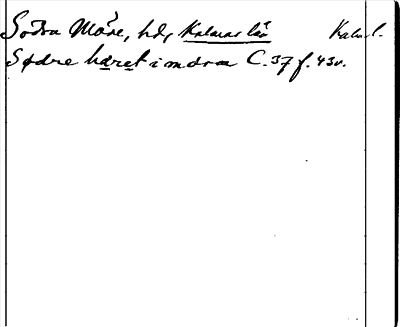 Södra Möre, hd, Kalmar län Kalm l.
Sødre hæret i mdra C. 37 f. 43v.